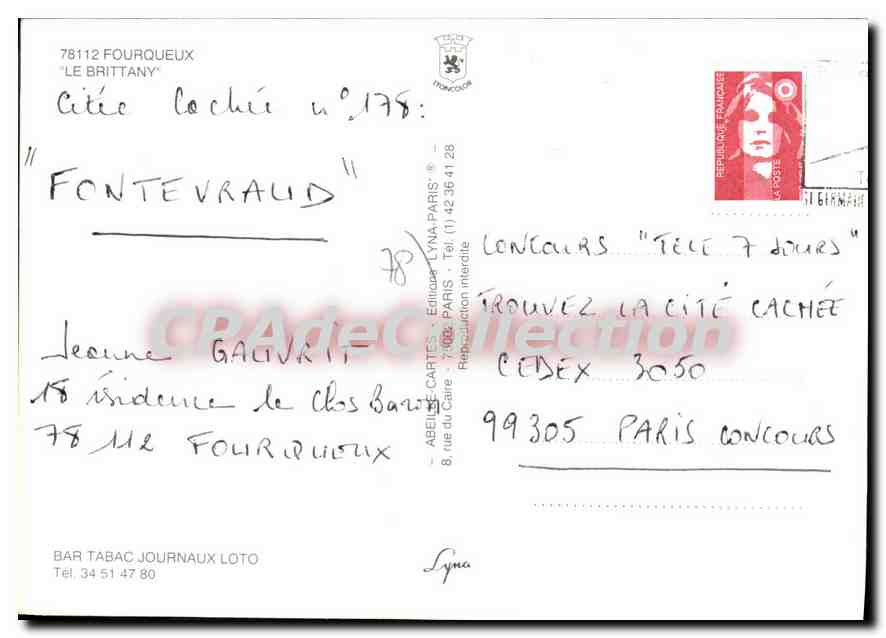 78112 FOURQUEUX
"LE BRITTANY"
Citée Cachée n°.178:
"FONTEVRAUD"
Jeanne GAUVRIT
18 résidence le Clos Baron
78 112 FOURQUEUX
BAR TABAC JOURNAUX LOTO
Tél. 34 51 47 80
LYONCOLOR
— ABEILLE-CARTES - Editions "LYNA-PARIS" ® —
8, rue du Caire - 75002 PARIS - Tél. (1) 42 36 41 28
Reproduction interdite
78)
Lyna
REPUBLIQUE FRANÇAISE
LA POSTE
ST GERMAIN
CONCOURS "TELE 7 JOURS"
TROUVEZ LA CITÉ CACHÉE
CEDEX 3050
99305 PARIS CONCOURS
CPAdeCollection